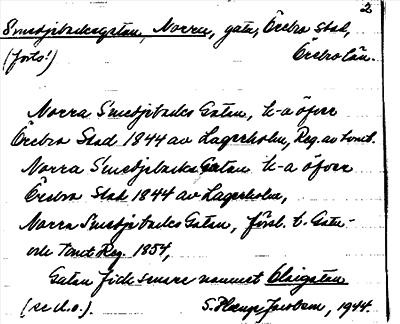 2
Smedjebacksgatan, Norra, gata, Örebro stad,
(forts.) Örebro län.
Norra Smedjebacks Gatan, k-a öfver
Örebro Stad 1844 av Lagerholm, Reg. av tomt.
Norra Smedjebacks Gatan k-a öfver
Örebro Stad 1844 av Lagerholm,
Norra Smedjebacks Gatan, förl. t. Gatu-
och Tomt Reg. 1854,
Gatan fick senare namnet Olaigatan
(se d.o.). S. Jacobsen, 1944.